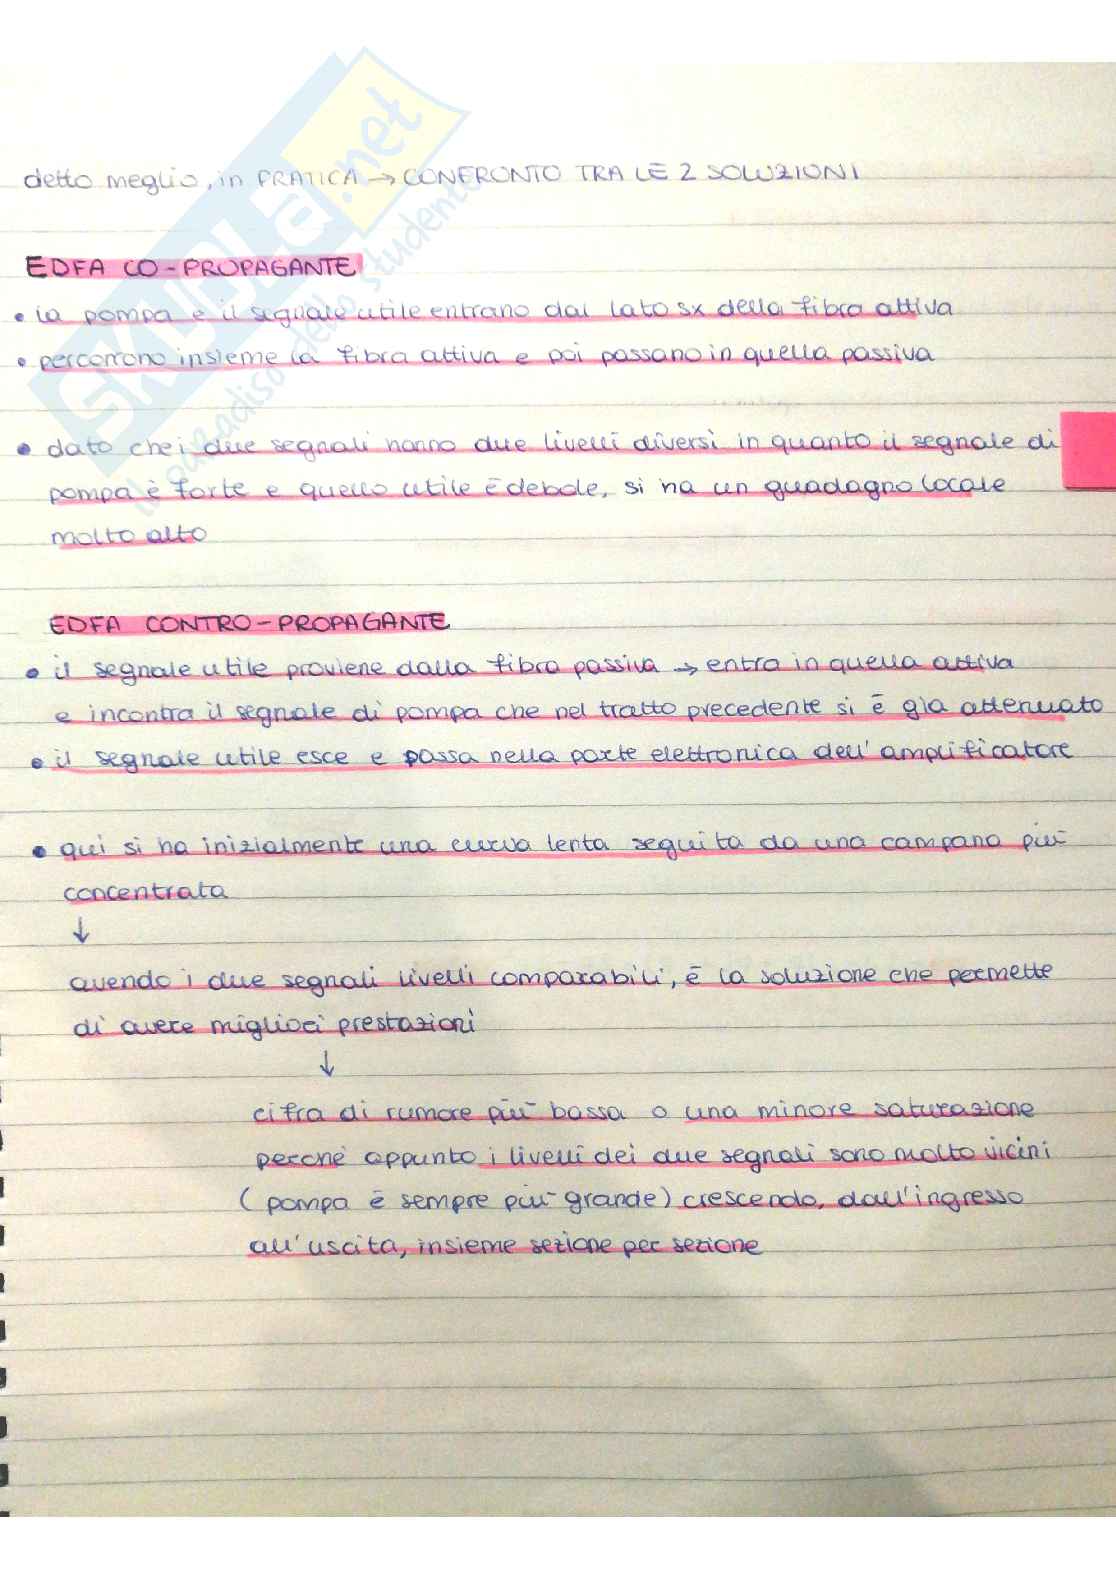 detto meglio, in PRATICA → CONFRONTO TRA LE 2 SOLUZIONI
EDFA CO-PROPAGANTE
• la pompa e il segnale utile entrano dal lato sx della fibra attiva
• percorrono insieme la fibra attiva e poi passano in quella passiva
• dato che i due segnali hanno due livelli diversi in quanto il segnale di
pompa è forte e quello utile è debole, si ha un guadagno locale
molto alto
EDFA CONTRO-PROPAGANTE
• il segnale utile proviene dalla fibra passiva → entra in quella attiva
e incontra il segnale di pompa che nel tratto precedente si è già attenuato
• il segnale utile esce e passa nella parte elettronica dell'amplificatore
• qui si ha inizialmente una curva lenta seguita da una campana più
concentrata
↓
avendo i due segnali livelli comparabili, è la soluzione che permette
di avere migliori prestazioni
↓
cifra di rumore più bassa o una minore saturazione
perché appunto i livelli dei due segnali sono molto vicini
(pompa è sempre più grande) crescendo, dall'ingresso
all'uscita, insieme sezione per sezione
SKUOLA.net
il paradiso dello studente